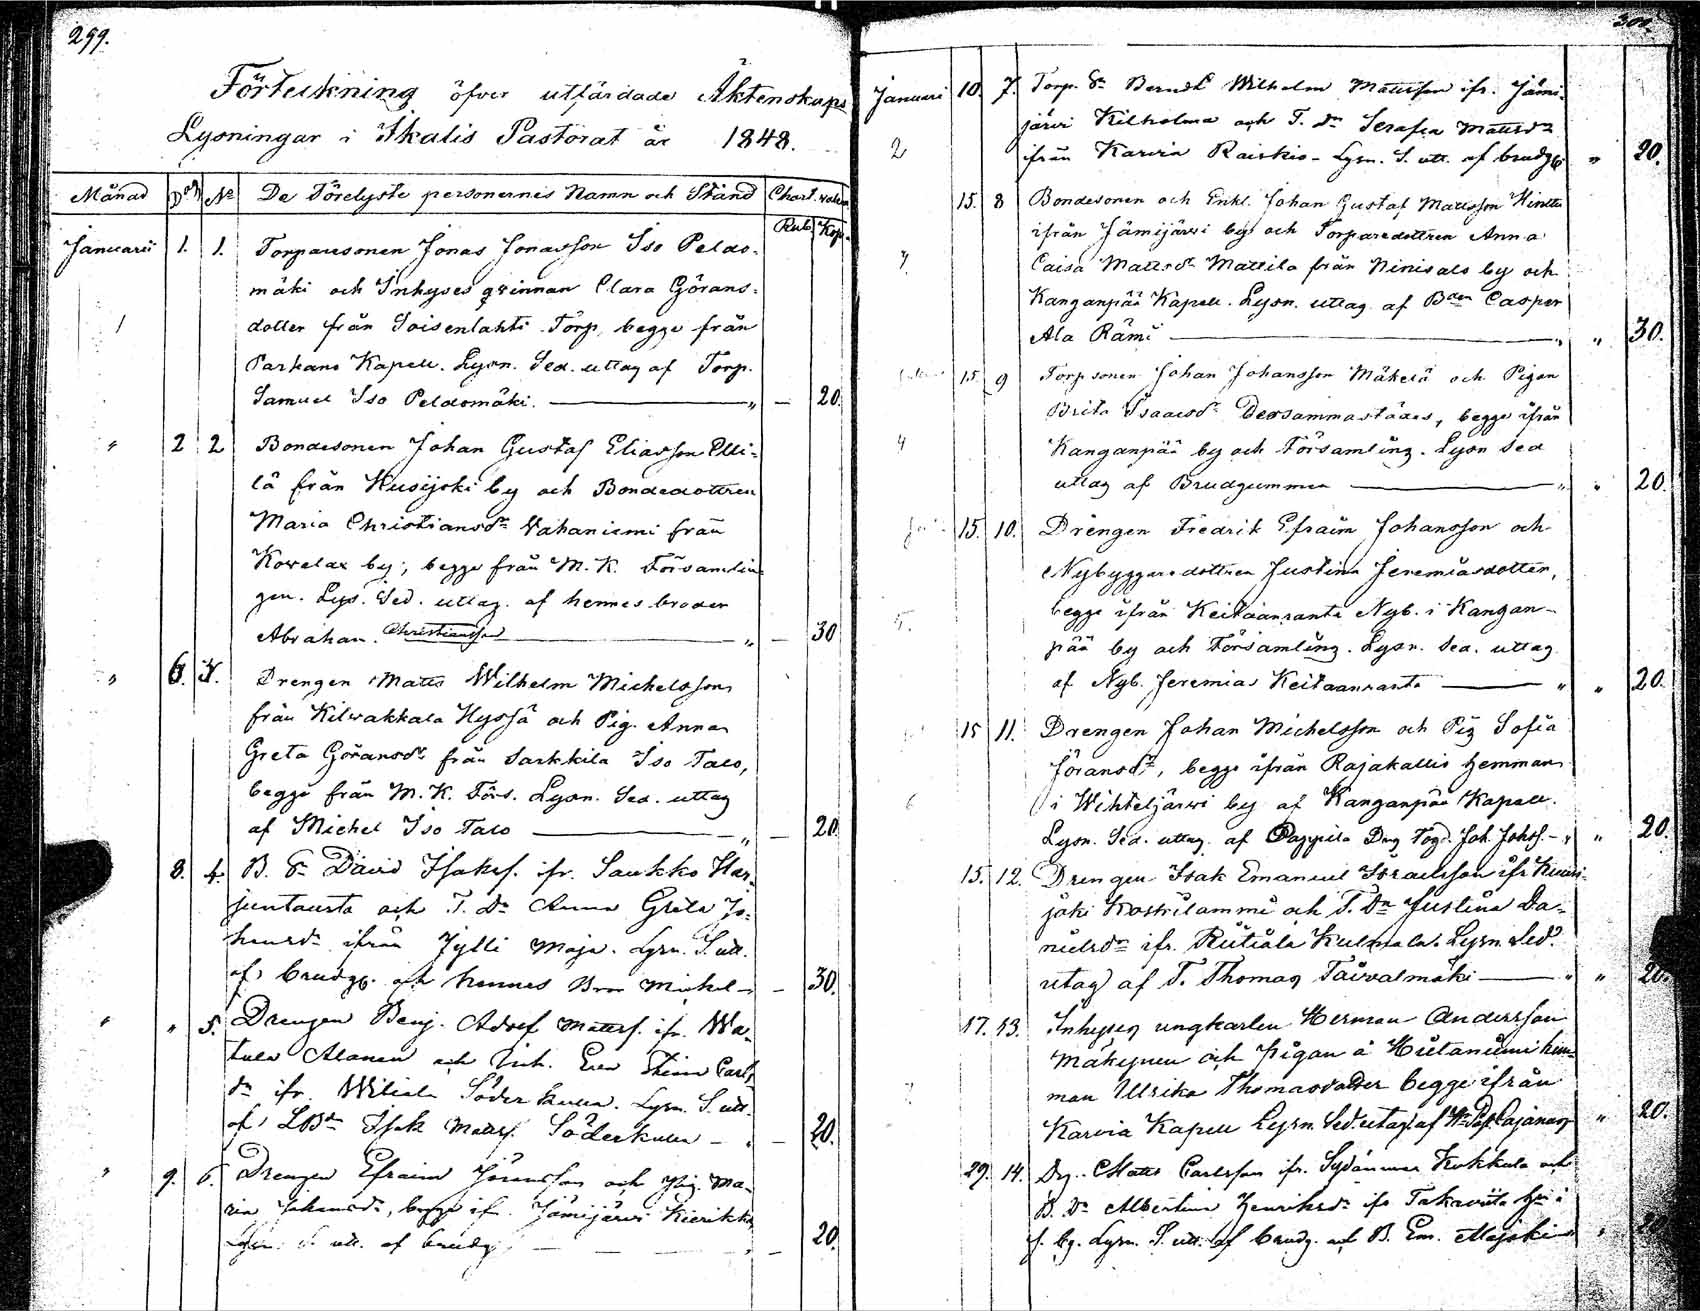 299.
Förteckning öfver utfärdade Äktenskaps
Lysningar i Ikalis Pastorat år 1848.
Månad Dag No De Förelyste personernes Namn och Stånd Chart.
Rub. Kop.
Januarii 1. 1. Torparesonen Jonas Jonasson Iso Peldo-
mäki och Inhyses qvinnan Clara Görans-
dotter från Soisenlahti Torp, begge från
Parkano Kapell. Lysn. Sed. uttag af Torp.
Samuel Iso Peldomäki. — „ — 20.
„ 2 2 Bondesonen Johan Gustaf Eliasson Elli-
lä från Kusijoki by och Bondedottren
Maria Christiansdr Vahaniemi från
Kovelax by, begge från M. K. Församlin-
gen. Lys. Sed. uttag. af hennes broder
Abraham Christiansson — „ — 30
„ 6. 3. Drengen Matts Wilhelm Michelsson
från Kilwakkala Hyssä och Pig. Anna
Greta Göransdr från Sarkkila Iso Talo,
begge från M. K. Förs. Lysn. Sed. uttag
af Michel Iso Talo — „ — 20
8. 4. B. Sn David Isaksf. ifr. Saukko Har-
juntausta och T. Dr Anna Greta Jo-
hansdr ifrån Jylli Maja. Lysn. S. utt.
af brudg. och hennes Bror Michel — 30.
„ „ 5. Drengen Benj. Adolf Mattsf. ifr. Wa-
tula Alanen och Inh. Eva Stina Carls
dr ifr. Wiliala Söderkulla. Lysn. S. utt.
af LBdn Isak Mattsf. Söderkulla — „ — 20.
„ 9. 6. Drengen Efraim Jöransson och Pig. Ma-
ria Johansdr, begge ifr. Jämijärvi Kierikka
Lysn. S. utt. af brudg. — „ — 20.
300.
Januari 10. 7. Torp. Sn Berndt Wilhelm Mattsson ifr. Jämi-
järvi Kilholma och T. Dr Serafia Mattsdr
2 ifrån Karvia Raiskio - Lysn. S. utt. af brudg. „ 20.
15. 8 Bondesonen och Enkl. Johan Gustaf Mattsson
ifrån Jämijärvi by och Torparedottren Anna
Caisa Mattsdr Mattila från Niinisalo by och
Kanganpää Kapell. Lysn. uttag. af Bden Casper
Ala Rämi — „ „ 30.
15 9 Torpsonen Johan Johansson Mäkelä och Pigan
Brita Isaacsdr Dersammastädes, begge ifrån
4 Kanganpää by och Församling. Lysn Sed
uttag af Brudgummen — „ „ 20.
15. 10. Drengen Fredrik Efraim Johansson och
Nybyggaredottren Justina Jeremiasdotter,
5. begge ifrån Keitaanranta Nyb. i Kangan-
pää by och Församling. Lysn. Sed. uttag
af Nyb. Jeremias Keitaanranta — „ „ 20.
15 11. Drengen Johan Michelsson och Pig Sofia
Jöransdr, begge ifrån Rajakallio Hemman
6 i Wihteljärvi by af Kanganpää Kapell.
Lysn. Sed. uttag. af Pappila Drg Joh. Johsf. — „ „ 20.
15. 12. Drengen Isak Emanuel Israelsson ifr
jäki Kostrilammi och T. Dr Justina Da-
nielsdr ifr. Riitiala Kulmala. Lysn. Sed.
utag af T. Thomas Taivalmäki — „ „ 20.
17. 13. Inhyses ungkarlen Herman Andersson
Mäkynen och Pigan å Hietaniemi hem-
man Ulrika Thomasdotter begge ifrån
Karvia Kapell Lysn. Sed. utag af Cajanus „ 20.
29. 14. Drg. Matts Carlsson ifr. Sydänmaa Kokkala och
B. Dr Albertina Henriksdr ifr Takaviita
s. by. Lysn. S. utt. af brudg. och B. Em. Majoki — „ 20